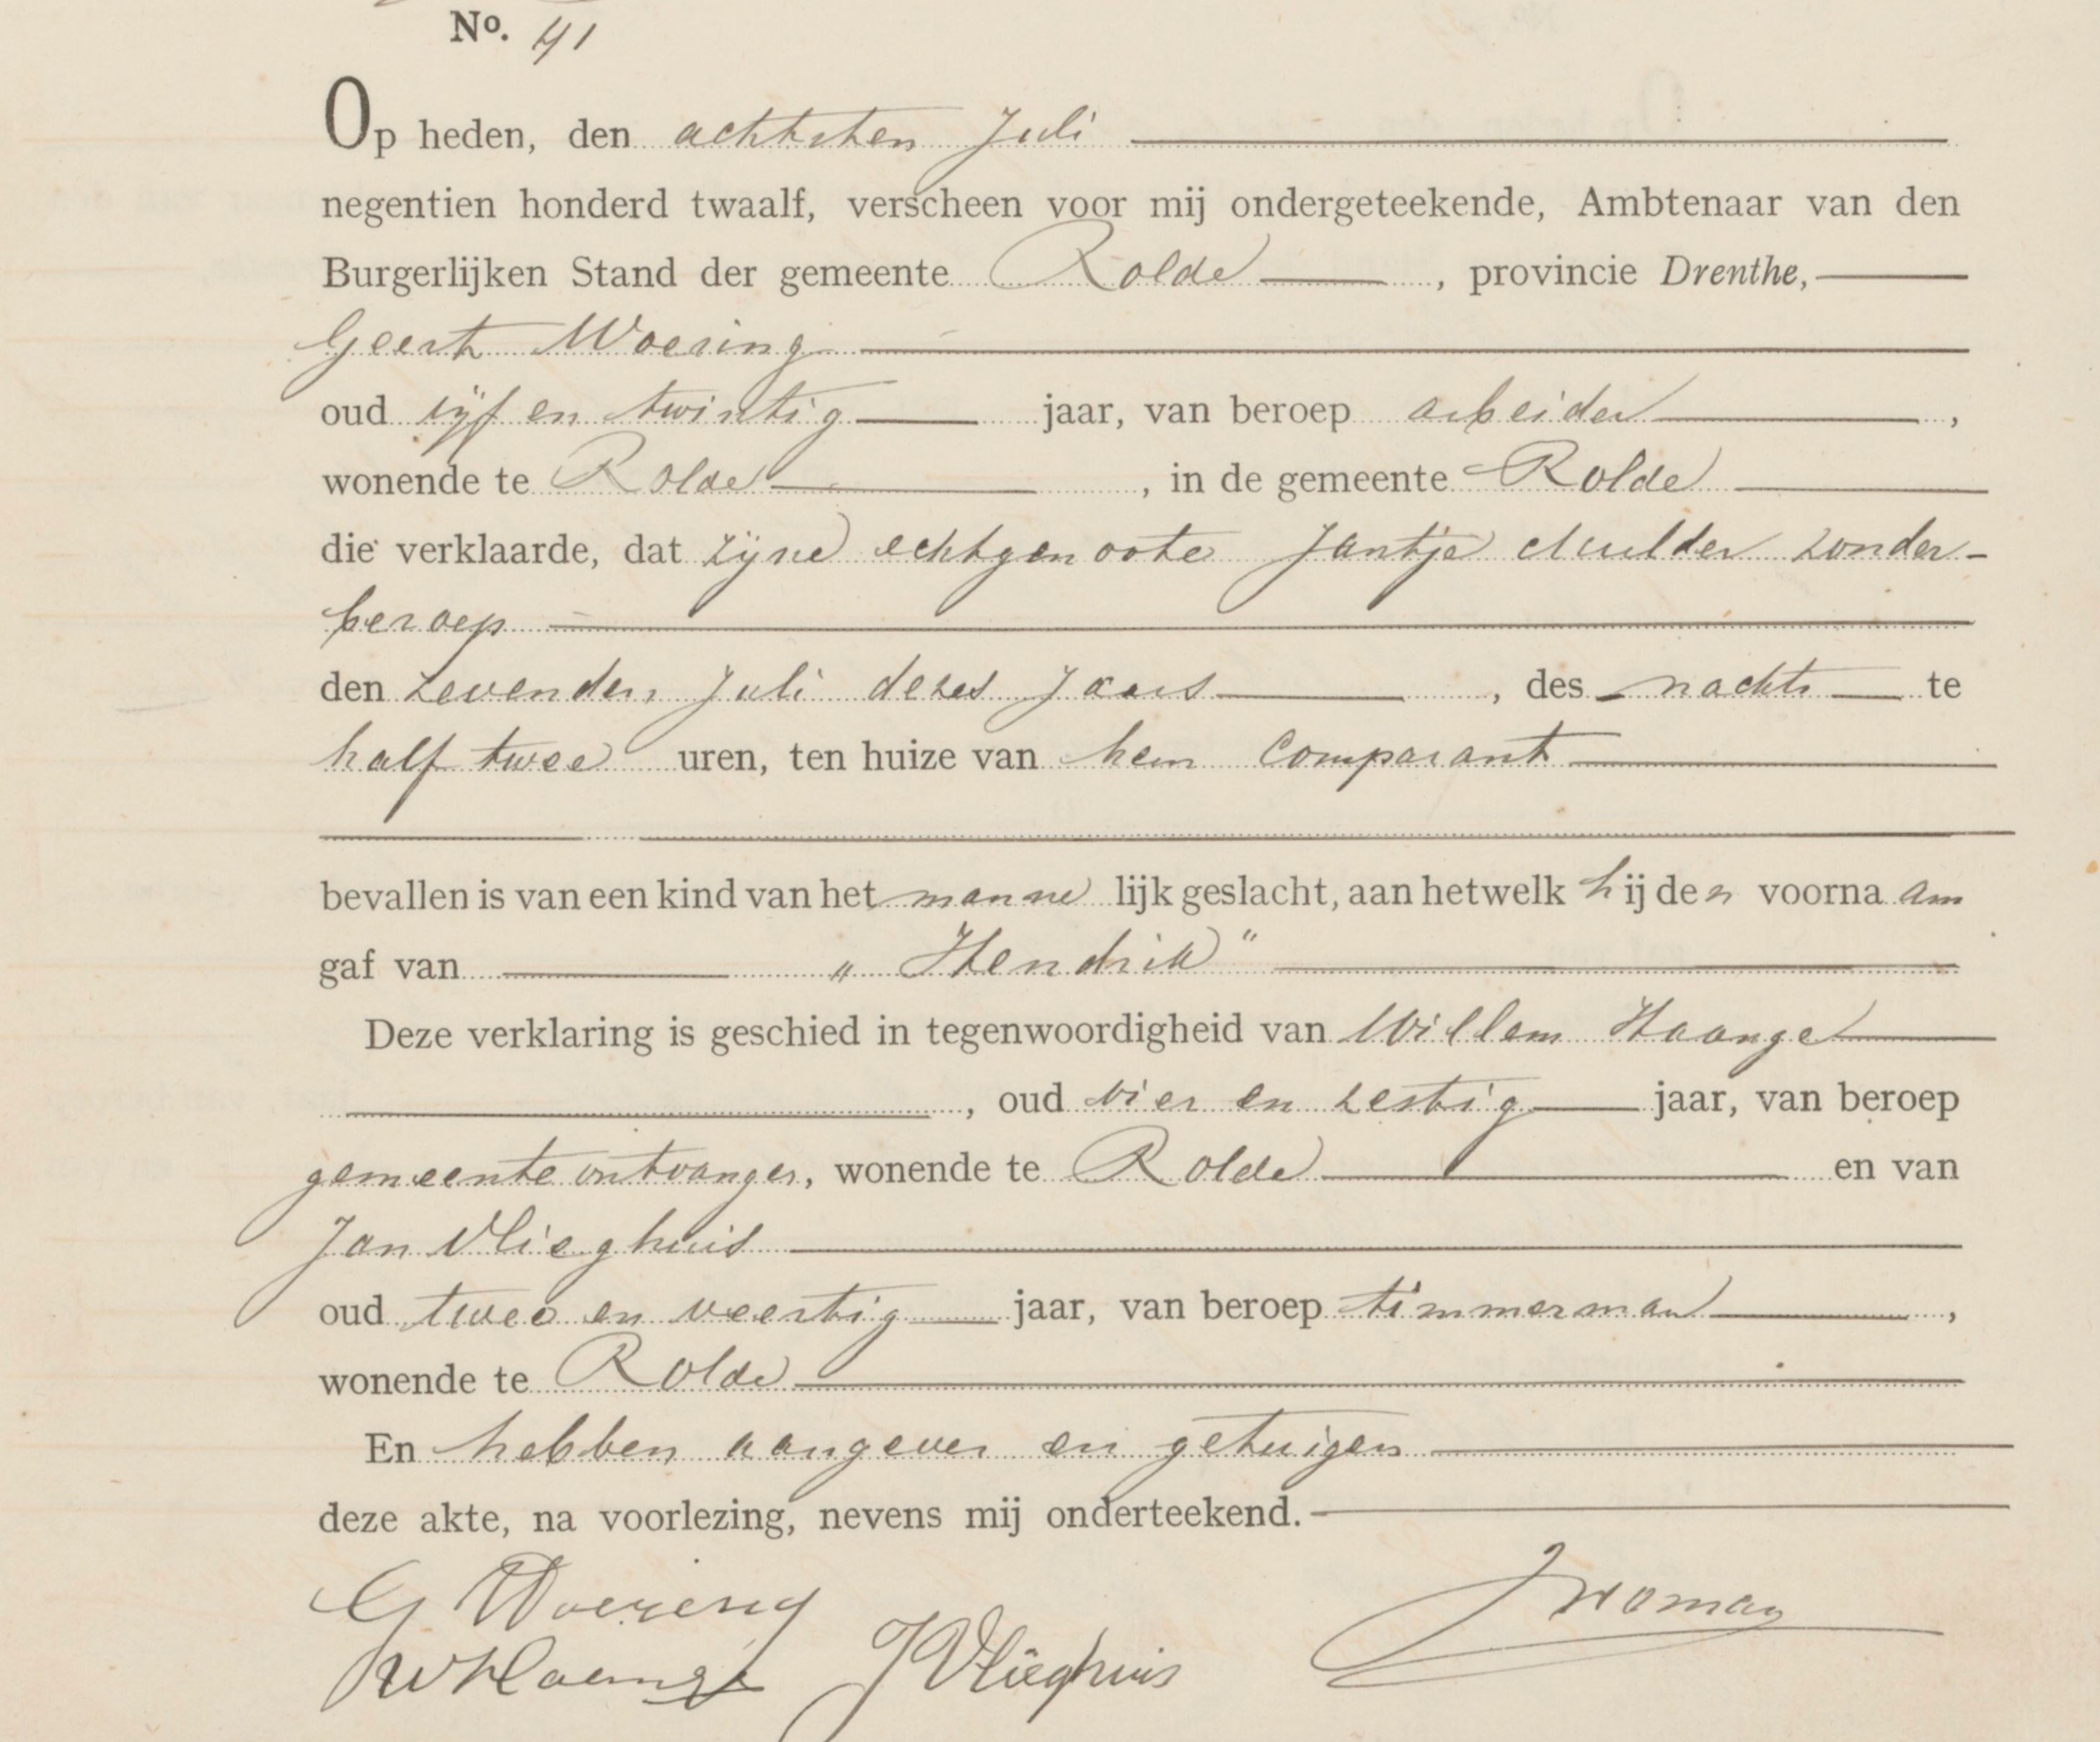 No. 41
Op heden, den achtsten Juli
negentien honderd twaalf, verscheen voor mij ondergeteekende, Ambtenaar van den
Burgerlijken Stand der gemeente Rolde, provincie Drenthe,
Geert Woering
oud vijf en twintig jaar, van beroep arbeider,
wonende te Rolde, in de gemeente Rolde
die verklaarde, dat zijne echtgenoote Jantje Mulder zonder-
beroep
den zevenden Juli dezes jaars, des nachts te
half twee uren, ten huize van hem comparant
bevallen is van een kind van het mannelijk geslacht, aan hetwelk hij den voornaam
gaf van "Hendrik"
Deze verklaring is geschied in tegenwoordigheid van Willem Haange
, oud vier en zestig jaar, van beroep
gemeenteontvanger, wonende te Rolde en van
Jan Vlieghuis
oud twee en veertig jaar, van beroep timmerman,
wonende te Rolde
En hebben aangever en getuigen
deze akte, na voorlezing, nevens mij onderteekend.
G Woering
W Haange JVlieghuis